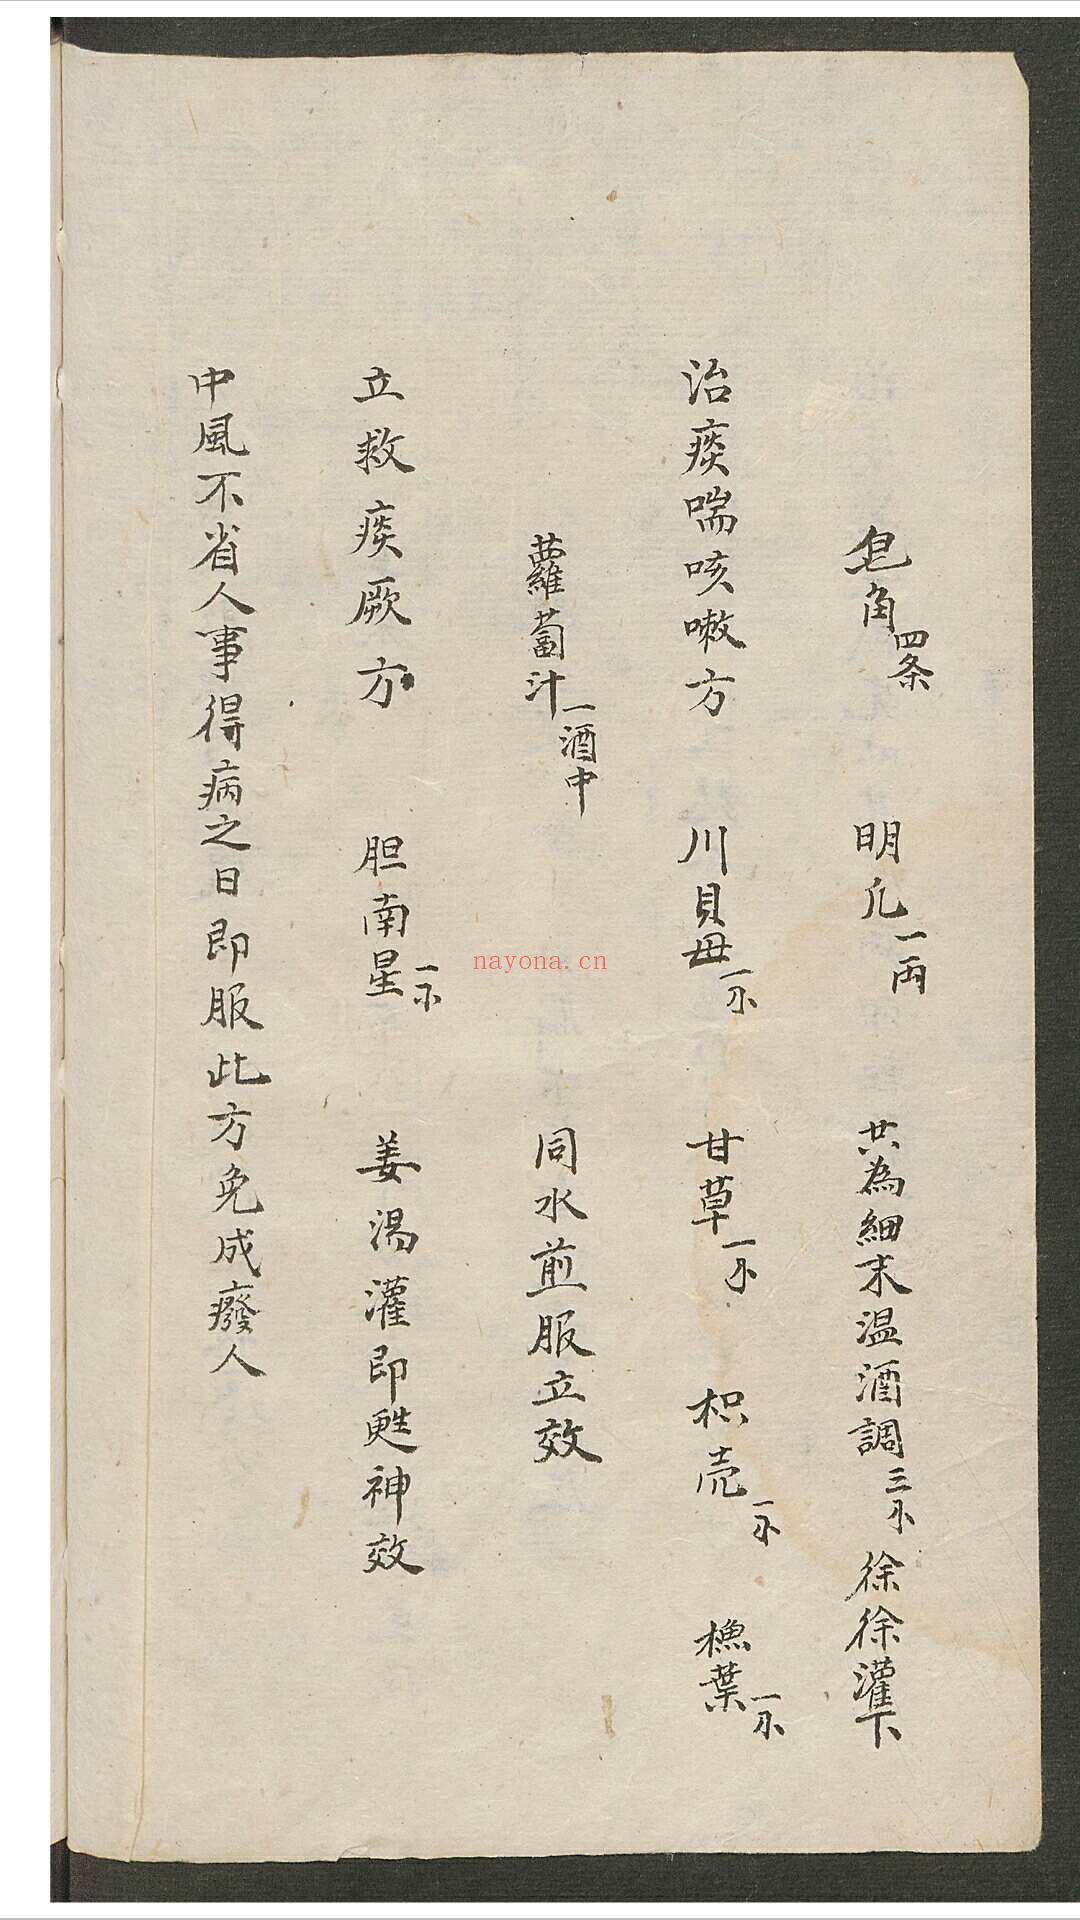 皂角四条 明凡一両 共為細末温酒調三木 徐徐灌下
治痰喘咳嗽方 川貝母一木 甘草一木 枳壳一木 樵葉一木
蘿蔔汁一酒中 同水煎服立效
立救痰厥方 胆南星一木 姜湯灌即甦神效
中風不省人事得病之日即服此方免成癈人
nayona.cn